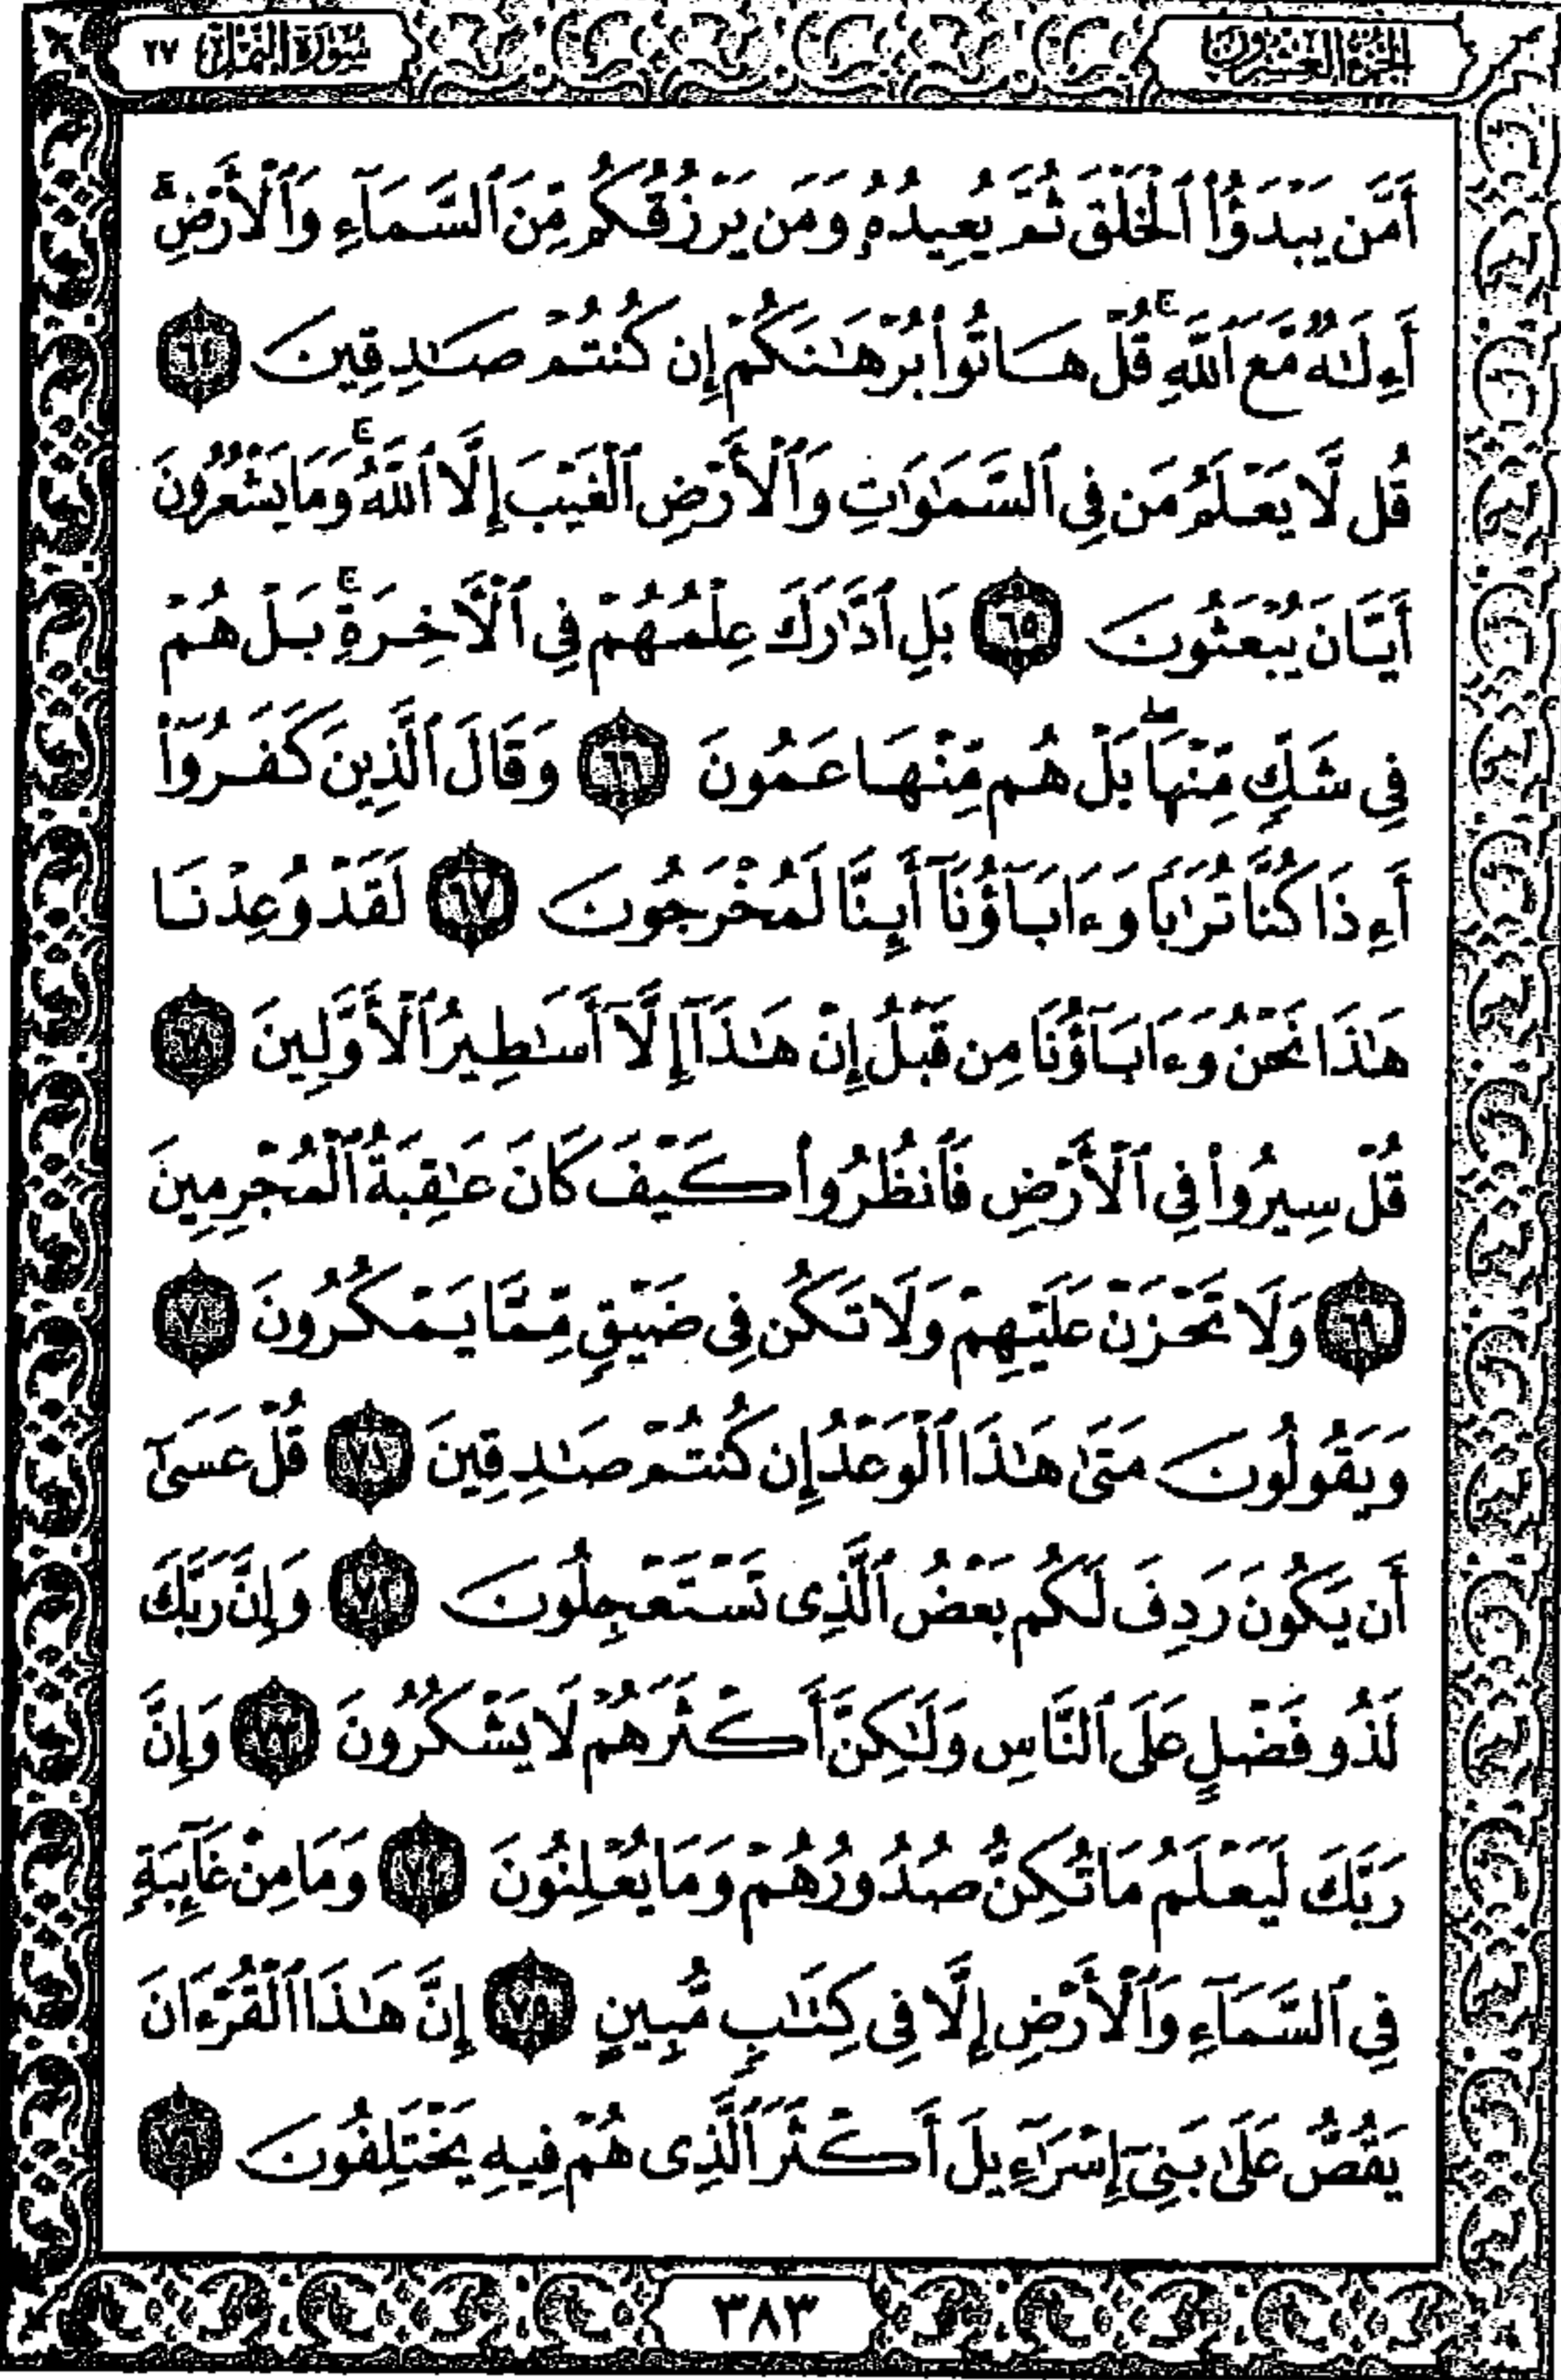 الجزء العشرون
سورة النمل ٢٧
أَمَّن يَبۡدَؤُاْ ٱلۡخَلۡقَ ثُمَّ يُعِيدُهُۥ وَمَن يَرۡزُقُكُم مِّنَ ٱلسَّمَآءِ وَٱلۡأَرۡضِۗ
أَءِلَٰهٞ مَّعَ ٱللَّهِۚ قُلۡ هَاتُواْ بُرۡهَٰنَكُمۡ إِن كُنتُمۡ صَٰدِقِينَ ٦٤
قُل لَّا يَعۡلَمُ مَن فِي ٱلسَّمَٰوَٰتِ وَٱلۡأَرۡضِ ٱلۡغَيۡبَ إِلَّا ٱللَّهُۚ وَمَا يَشۡعُرُونَ
أَيَّانَ يُبۡعَثُونَ ٦٥ بَلِ ٱدَّٰرَكَ عِلۡمُهُمۡ فِي ٱلۡأٓخِرَةِۚ بَلۡ هُمۡ
فِي شَكّٖ مِّنۡهَاۖ بَلۡ هُم مِّنۡهَا عَمُونَ ٦٦ وَقَالَ ٱلَّذِينَ كَفَرُوٓاْ
أَءِذَا كُنَّا تُرَٰبٗا وَءَابَآؤُنَآ أَئِنَّا لَمُخۡرَجُونَ ٦٧ لَقَدۡ وُعِدۡنَا
هَٰذَا نَحۡنُ وَءَابَآؤُنَا مِن قَبۡلُ إِنۡ هَٰذَآ إِلَّآ أَسَٰطِيرُ ٱلۡأَوَّلِينَ ٦٨
قُلۡ سِيرُواْ فِي ٱلۡأَرۡضِ فَٱنظُرُواْ كَيۡفَ كَانَ عَٰقِبَةُ ٱلۡمُجۡرِمِينَ
٦٩ وَلَا تَحۡزَنۡ عَلَيۡهِمۡ وَلَا تَكُن فِي ضَيۡقٖ مِّمَّا يَمۡكُرُونَ ٧٠
وَيَقُولُونَ مَتَىٰ هَٰذَا ٱلۡوَعۡدُ إِن كُنتُمۡ صَٰدِقِينَ ٧١ قُلۡ عَسَىٰٓ
أَن يَكُونَ رَدِفَ لَكُم بَعۡضُ ٱلَّذِي تَسۡتَعۡجِلُونَ ٧٢ وَإِنَّ رَبَّكَ
لَذُو فَضۡلٍ عَلَى ٱلنَّاسِ وَلَٰكِنَّ أَكۡثَرَهُمۡ لَا يَشۡكُرُونَ ٧٣ وَإِنَّ
رَبَّكَ لَيَعۡلَمُ مَا تُكِنُّ صُدُورُهُمۡ وَمَا يُعۡلِنُونَ ٧٤ وَمَا مِنۡ غَآئِبَةٖ
فِي ٱلسَّمَآءِ وَٱلۡأَرۡضِ إِلَّا فِي كِتَٰبٖ مُّبِينٍ ٧٥ إِنَّ هَٰذَا ٱلۡقُرۡءَانَ
يَقُصُّ عَلَىٰ بَنِيٓ إِسۡرَٰٓءِيلَ أَكۡثَرَ ٱلَّذِي هُمۡ فِيهِ يَخۡتَلِفُونَ ٧٦
٣٨٣